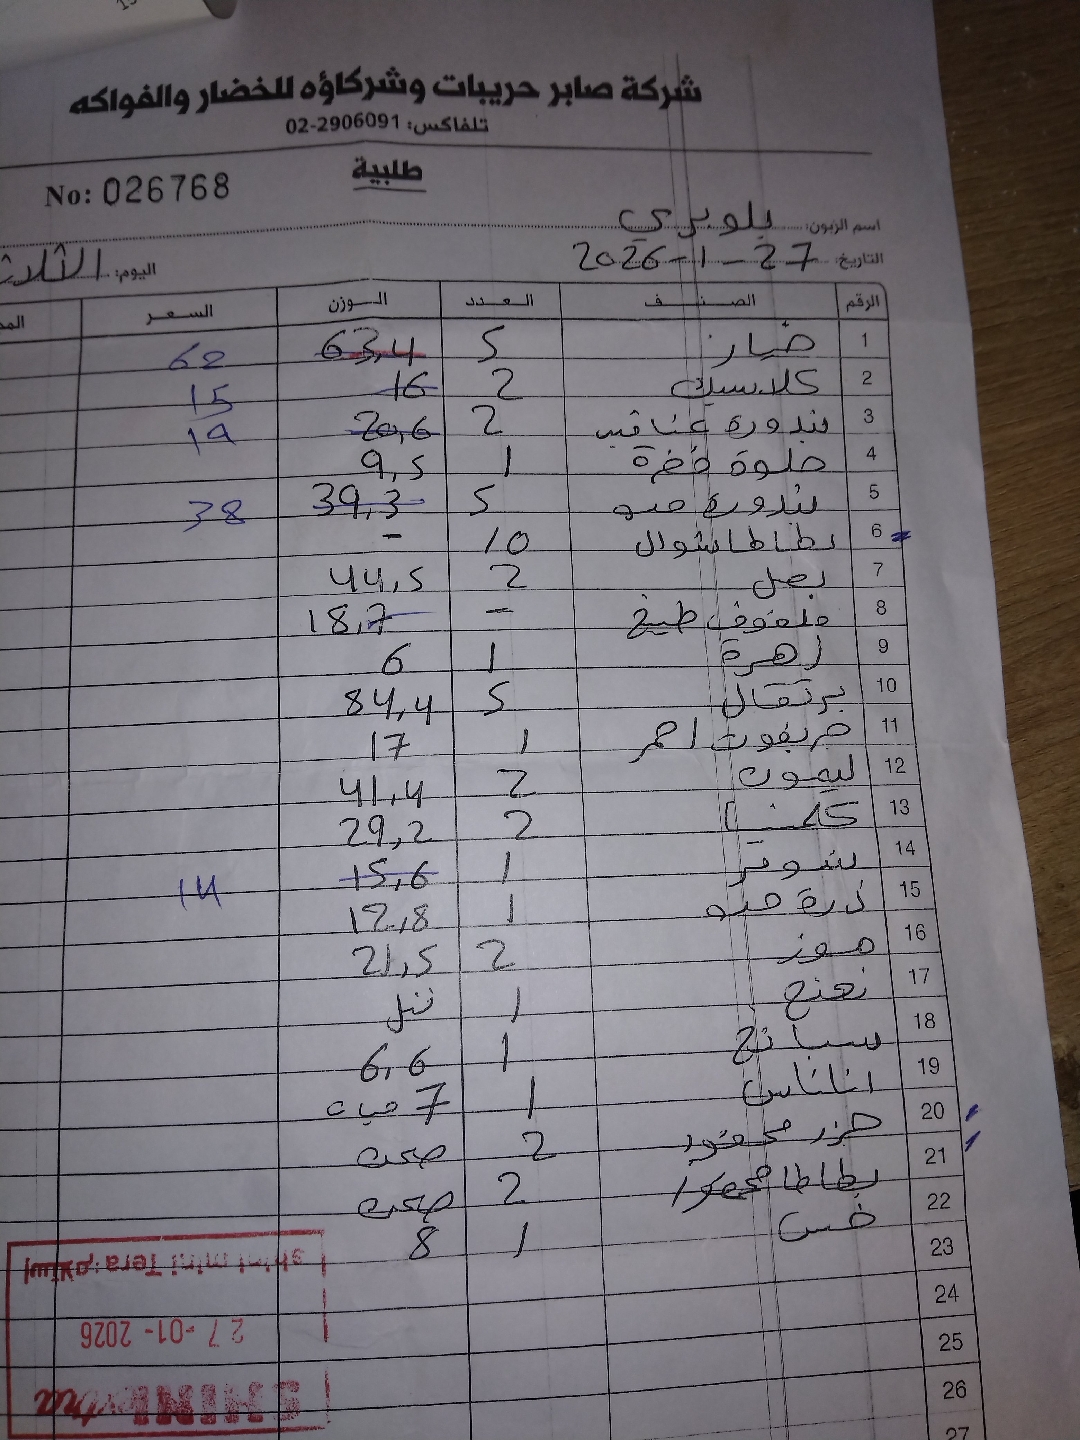 شركة صابر حريبات وشركاؤه للخضار والفواكه
تلفاكس: 02-2906091
طلبية
No: 026768
اسم الزبون: بلوبري
التاريخ: 27-1-2026
اليوم: الثلاث
الرقم الصنف العدد الوزن السعر
1 خيار 5 63,4 62
2 كلاسيك 2 16 15
3 بندورة عناقيد 2 20,6 19
4 حلوة 1 9,5
5 بندورة حبو 5 39,3 38
6 بطاطا شوال 10 -
7 بصل 2 44,5
8 ملفوف طبيخ - 18,7
9 زهرة 1 6
10 برتقال 5 84,4
11 جريفوت احمر 1 17
12 ليمون 2 41,4
13 كلمنتينا 2 29,2
14 شومر 1 15,6 14
15 ذرة حبو 1 12,8
16 موز 2 21,5
17 نعنع 1
18 سبانخ 1 6,6
19 اناناس 1 7 حبات
20 جزر 2
21 بطاطا 2
22 خس 1 8
23
24
25
26
27
استلام: shini mini Tera
27-01-2026
SHINI extra